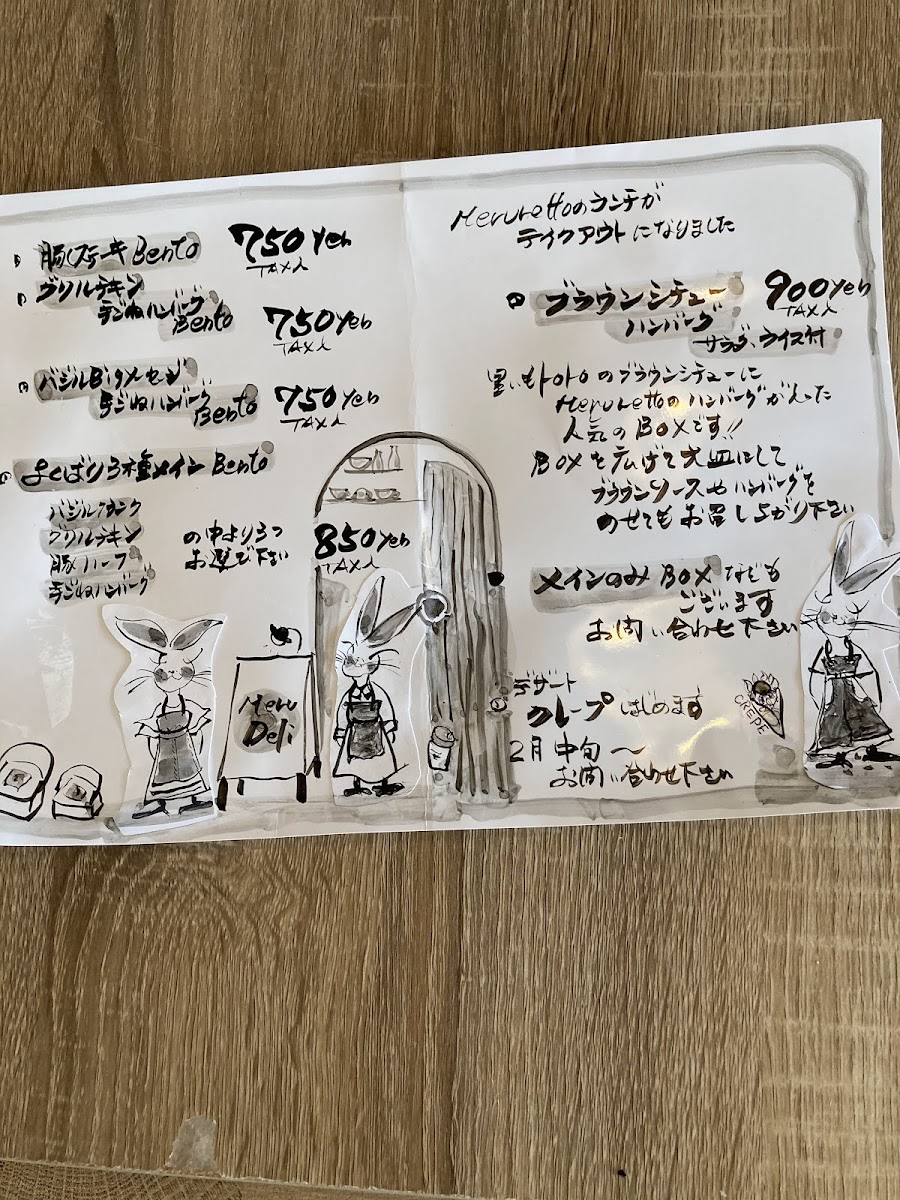 豚ステーキ Bento 750 yen
TAX入
グリルチキン
手ごねハンバーグ
Bento 750 yen
TAX入
バジルBigソーセージ
手ごねハンバーグ
Bento 750 yen
TAX入
よくばり3種メイン Bento
バジルフランク
グリルチキン
豚ハーフ
手ごねハンバーグ
の中より3つ
お選び下さい
850 yen
TAX入
Meru
Deli
Merurettoのランチが
テイクアウトになりました
ブラウンシチュー
ハンバーグ
900 yen
TAX入
サラダ、ライス付
のブラウンシチューに
Merurettoのハンバーグが入った
人気のBOXです!!
BOXを広げて大皿にして
ブラウンソースやハンバーグを
のせてもお召し上がり下さい
メインのみ BOX なども
ございます
お問い合わせ下さい
デザート
クレープ はじめます
CREPE
2月中旬～
お問い合わせ下さい